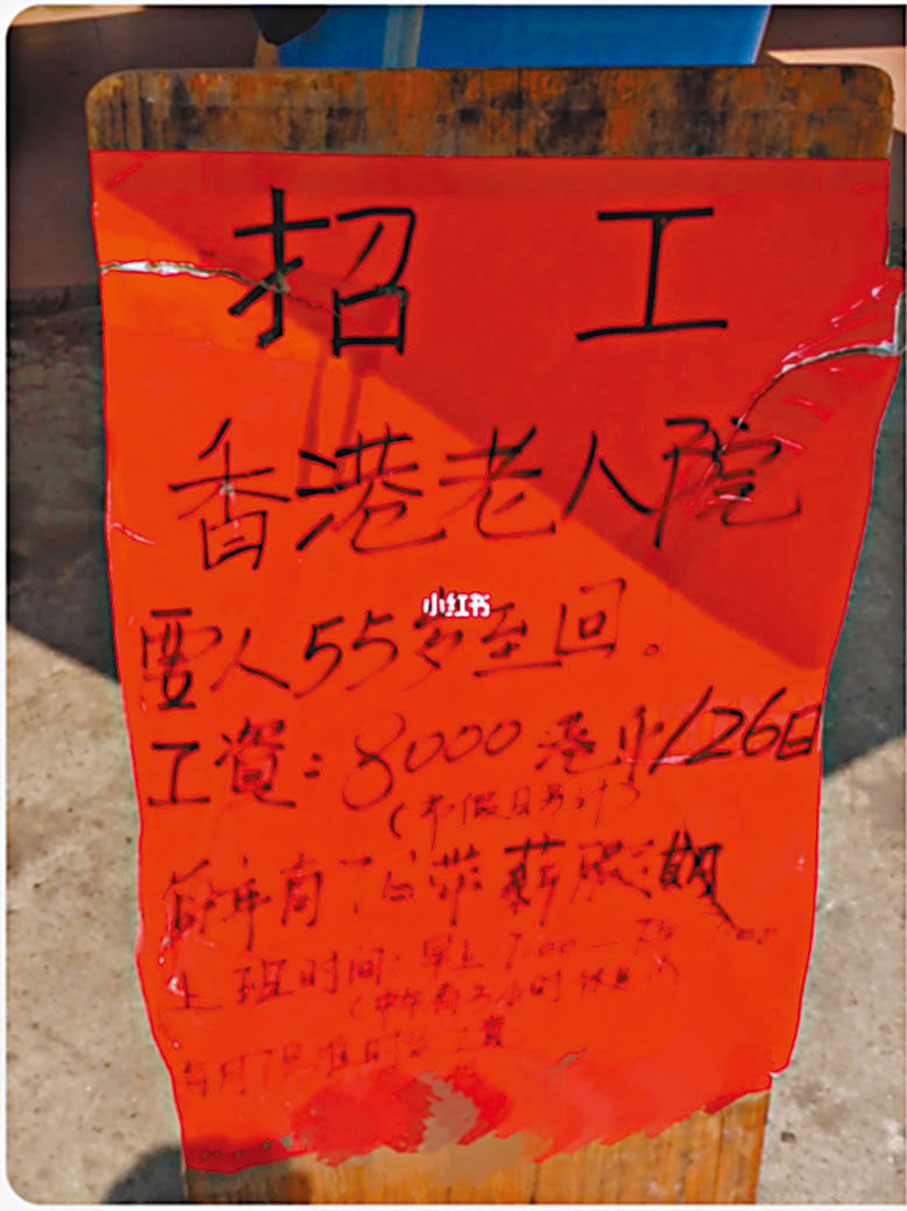 招 工
香港老人院
小红书
要人55岁至回。
工資：8000港币/26日
(节假日另计)
每年有7日带薪假期
上班时间：早上7:00—
(中午有3小时休息)
每月7号准时